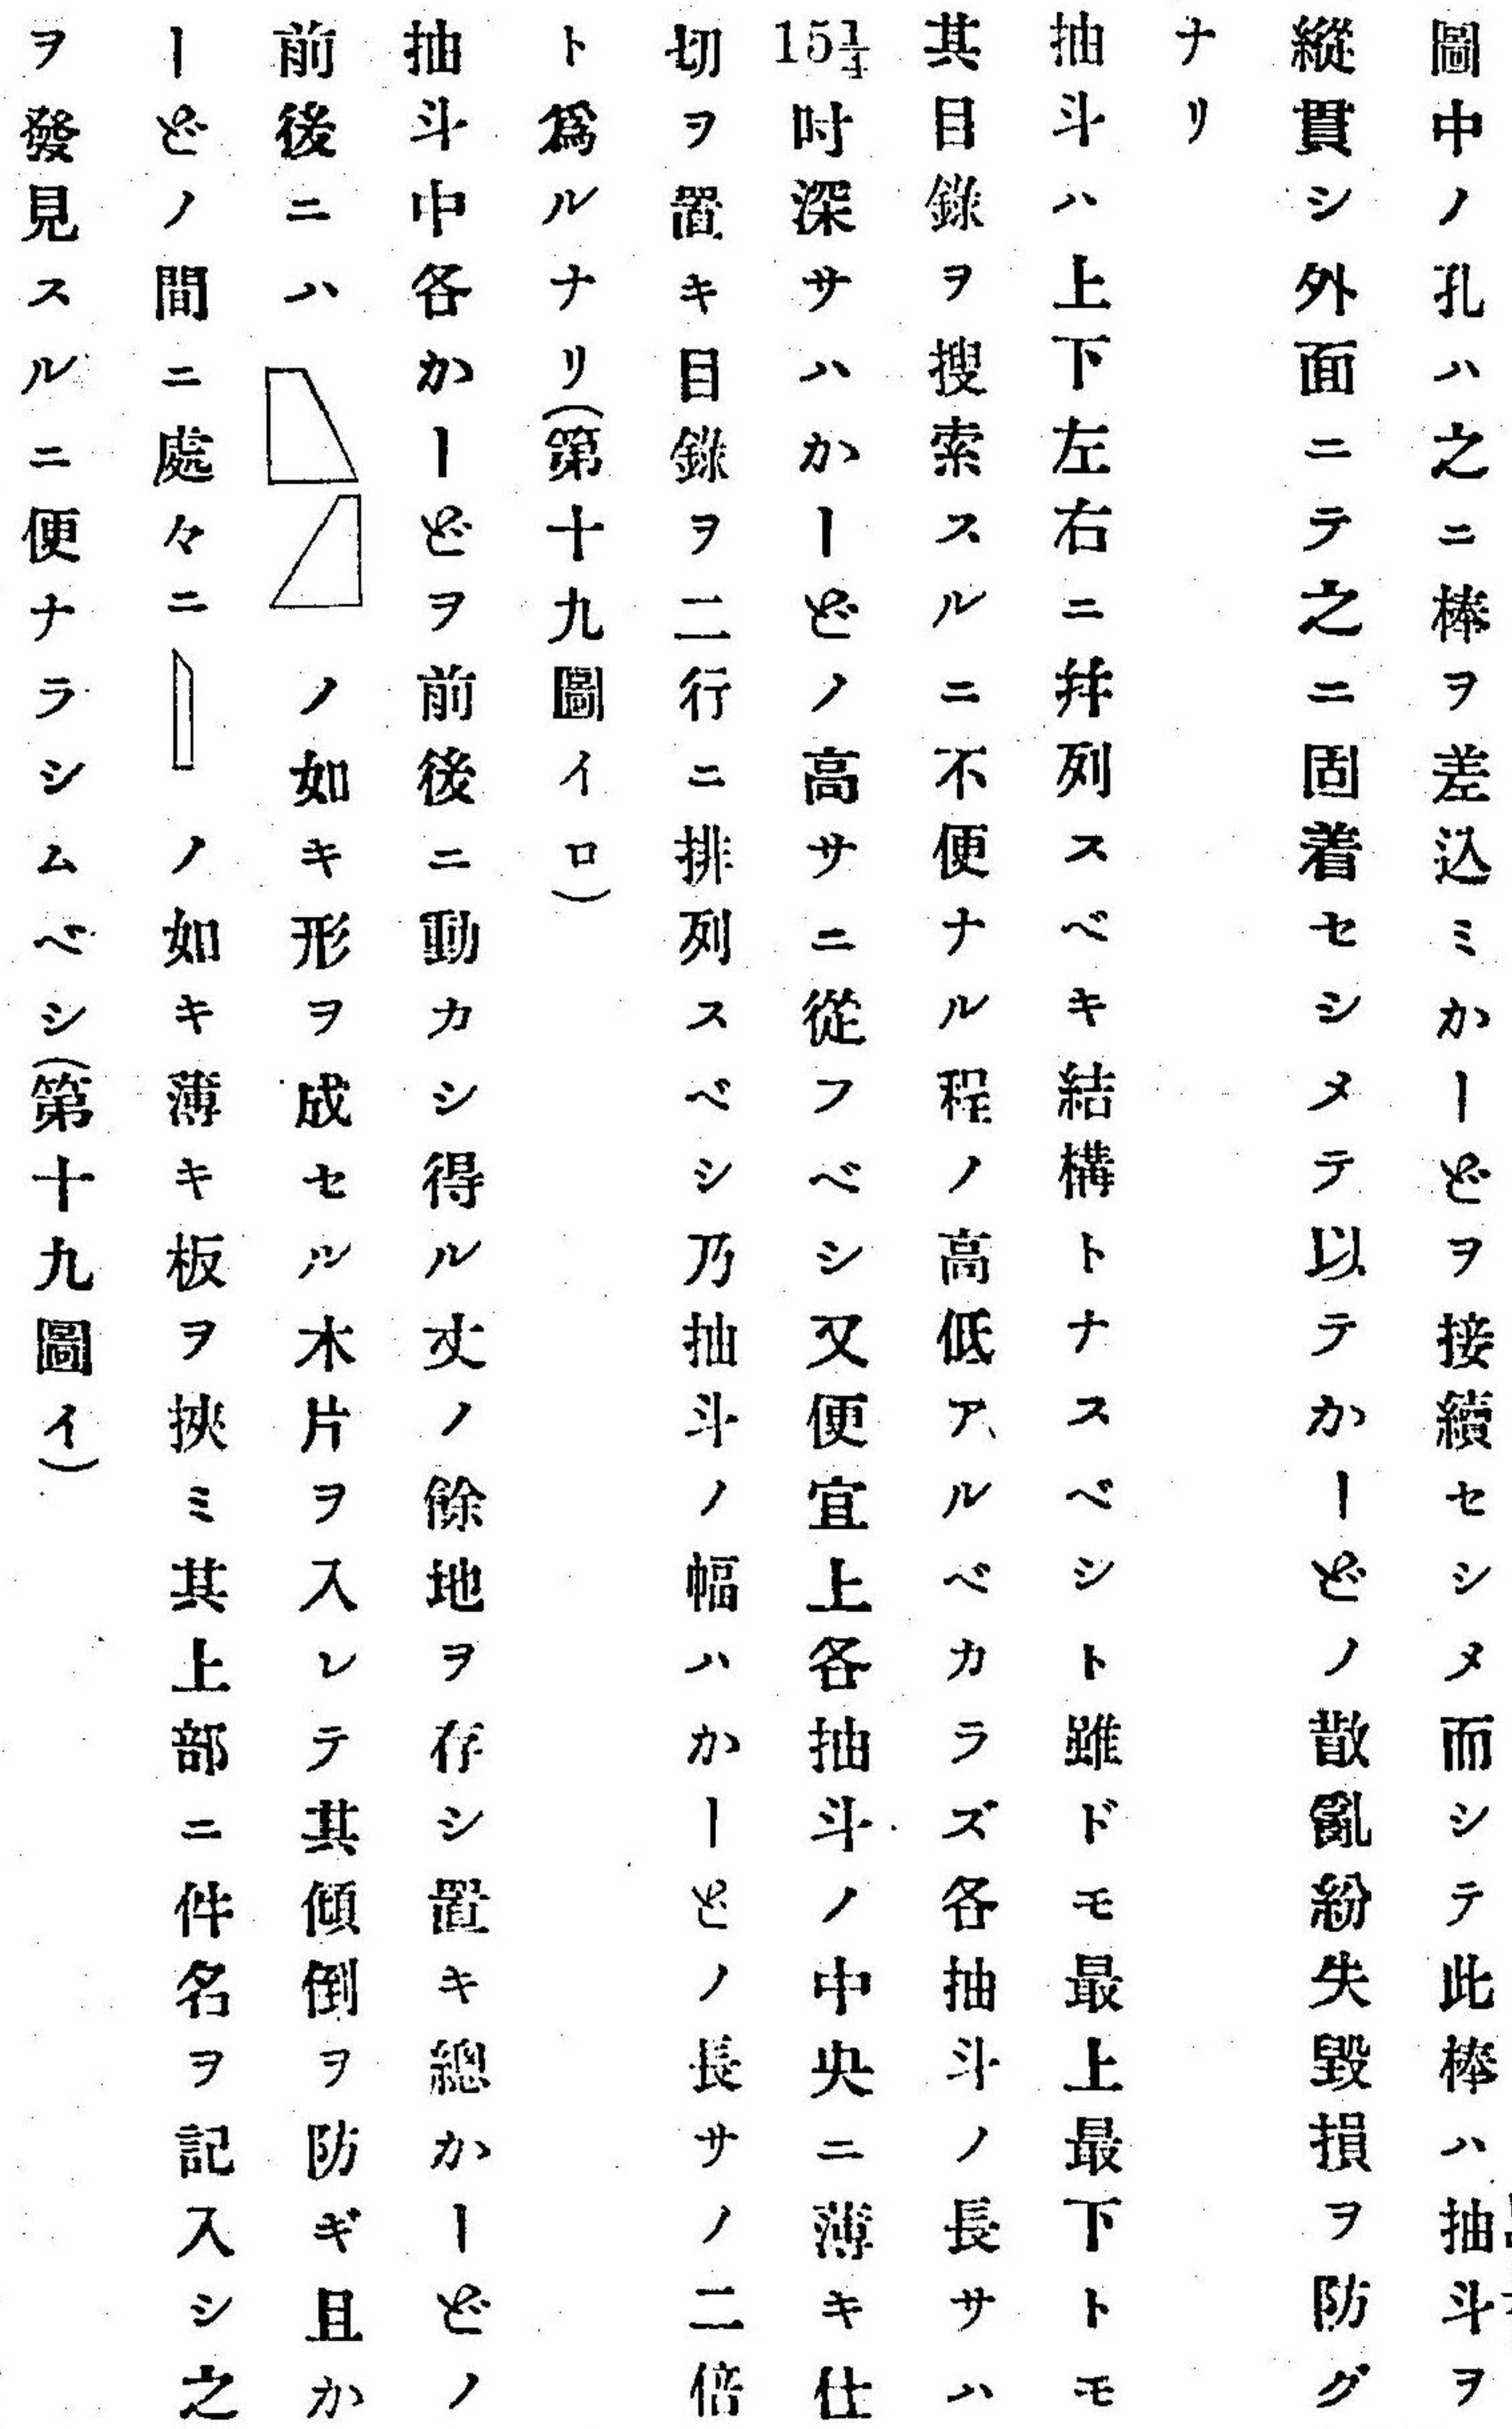 圖中ノ孔ハ之ニ棒ヲ差込ミかーどヲ接續セシメ而シテ此棒ハ抽斗ヲ
縱貫シ外面ニテ之ニ固着セシメテ以テかーどノ散亂紛失毀損ヲ防グ
ナリ
抽斗ハ上下左右ニ幷列スベキ結構トナスベシト雖ドモ最上最下トモ
其目錄ヲ搜索スルニ不便ナル程ノ高低アルベカラズ各抽斗ノ長サハ
15¼吋深サハかーどノ高サニ從フベシ又便宜上各抽斗ノ中央ニ薄キ仕
切ヲ置キ目錄ヲ二行ニ排列スベシ乃抽斗ノ幅ハかーどノ長サノ二倍
ト爲ルナリ(第十九圖イロ)
抽斗中各かーどヲ前後ニ動カシ得ル丈ノ餘地ヲ存シ置キ總かーどノ
前後ニハノ如キ形ヲ成セル木片ヲ入レテ其傾倒ヲ防ギ且か
ーどノ間ニ處々ニノ如キ薄キ板ヲ挾ミ其上部ニ件名ヲ記入シ之
ヲ發見スルニ便ナラシムベシ(第十九圖イ)